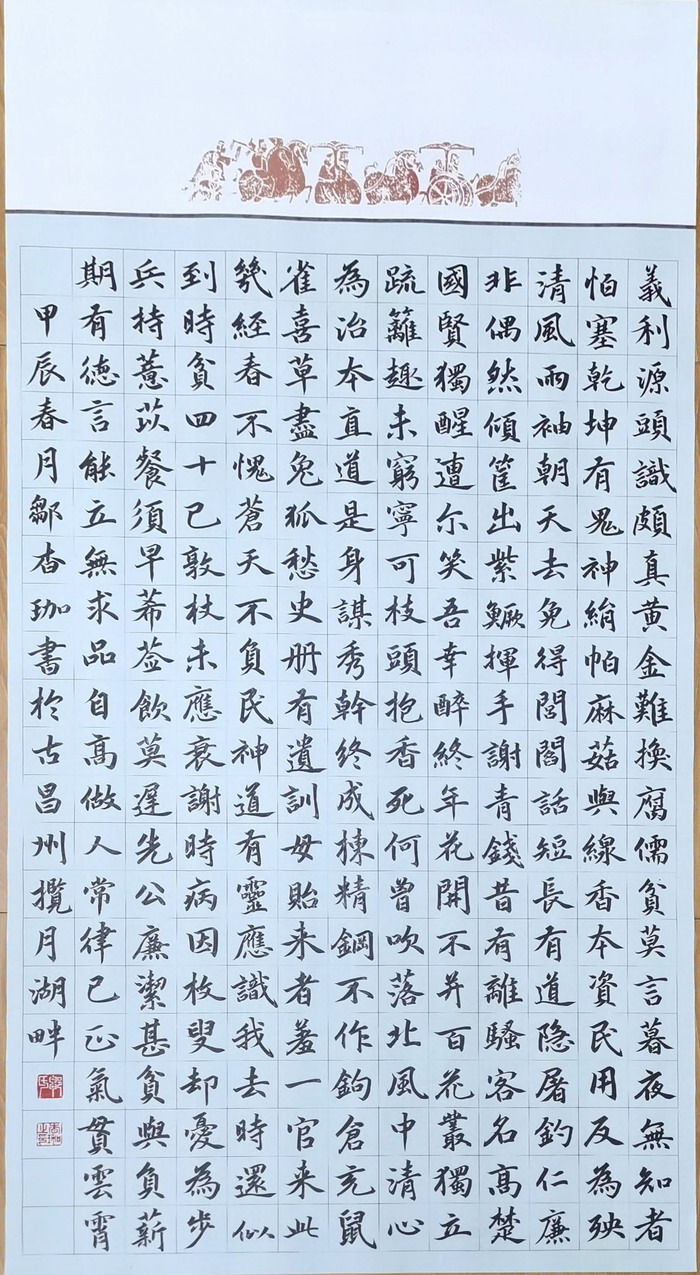 義利源頭識頗真黃金難換腐儒貧莫言暮夜無知者
怕塞乾坤有鬼神絹帕麻菇與線香本資民用反為殃
清風兩袖朝天去免得閭閻話短長有道隐屠釣仁廉
非偶然傾筐出紫鱖揮手謝青錢昔有離騷客名高楚
國賢獨醒遭尔笑吾幸醉終年花開不并百花叢獨立
疏籬趣未窮寧可枝頭抱香死何曾吹落北風中清心
為治本直道是身謀秀幹終成棟精鋼不作鉤倉充鼠
雀喜草盡兔狐愁史册有遺訓毋貽来者羞一官来此
幾經春不愧蒼天不負民神道有靈應識我去時還似
到時貧四十已敦杖未應衰謝時病因枚叟却憂為步
兵持薏苡餐須早莃莶飲莫遲先公廉潔甚貧與負薪
期有德言能立無求品自高做人常律己正氣貫雲霄
甲辰春月鄒杏珈書於古昌州攬月湖畔